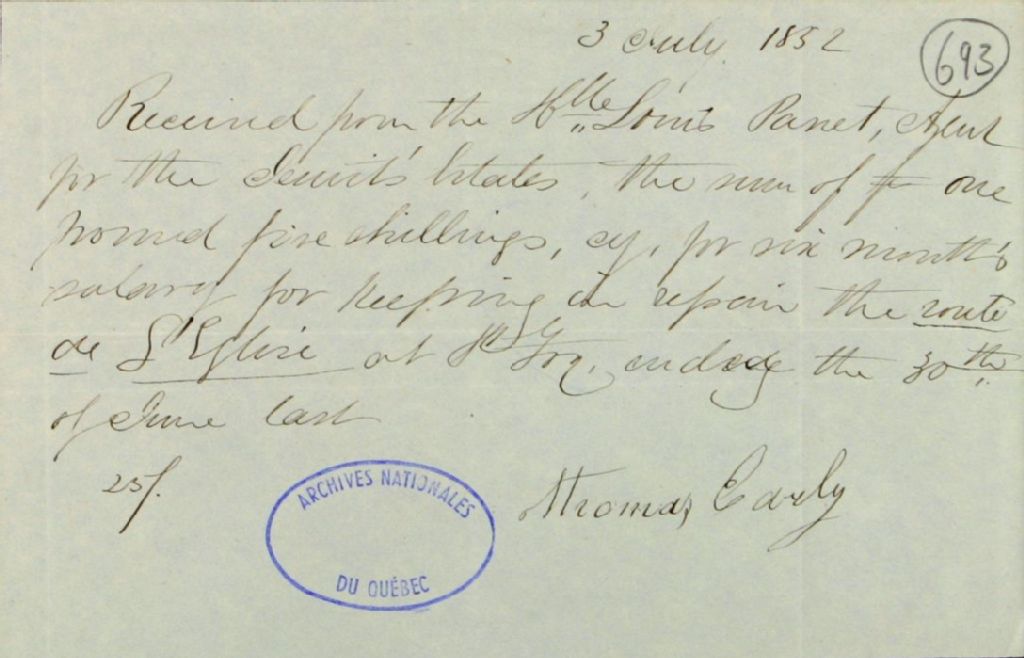 3 July 1852
693
Received from the Hble Louis Panet, Agent
for the Jesuits' Estates, the sum of one
pound five shillings, cy, for six month's
salary for keeping in repair the route
de L'Eglise at St Foy, ending the 30th
of June last
25/.
Thomas Early
ARCHIVES NATIONALES
DU QUÉBEC